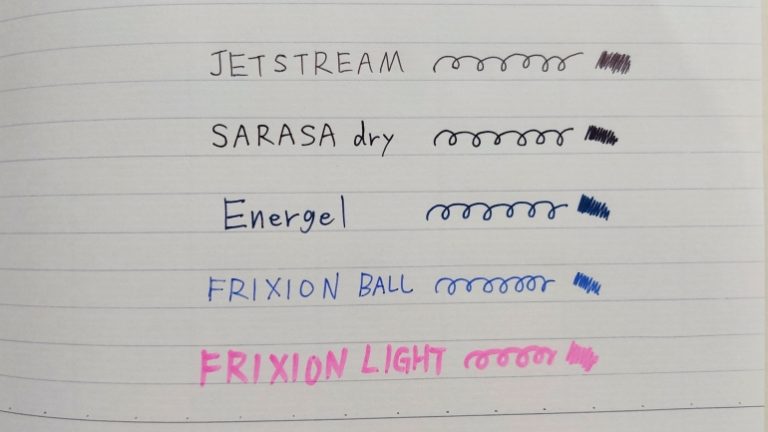 JETSTREAM
SARASA dry
Energel
FRIXION BALL
FRIXION LIGHT